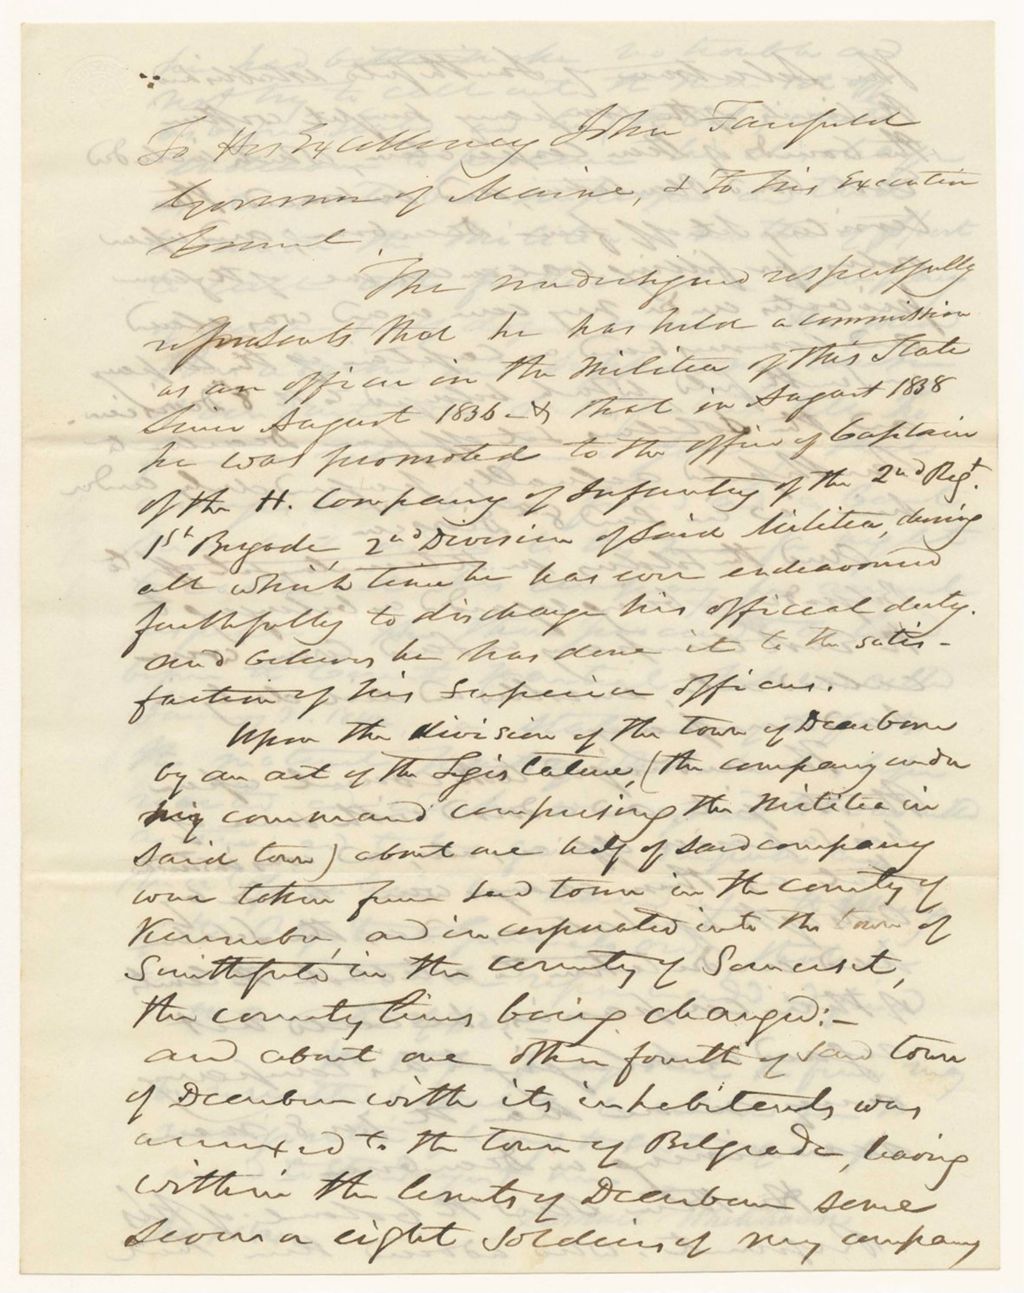 To His Excellency John Fairfield
Governor of Maine, & to his Executive
Council.
The undersigned respectfully
represents that he has held a commission
as an officer in the Militia of this State
Since August 1836 - & that in August 1838
he was promoted to the office of Captain
of the H. Company of Infantry of the 2nd Regt.
1st Brigade, 2nd Division of said Militia, during
all which time he has ever endeavored
faithfully to discharge his official duty.
and believes he has done it to the satis-
faction of his Superior officers.
Upon the division of the town of Dearborn
by an act of the Legislature, (the company under
my command comprising the Militia in
said town) about one half of said company
was taken from said town in the county of
Kennebec, and incorporated into the town of
Smithfield in the county of Somerset,
the county lines being changed:-
and about one other fourth of said town
of Dearborn with its inhabitants was
annexed to the town of Belgrade, leaving
within the limits of Dearborn some
seven or eight soldiers of my company